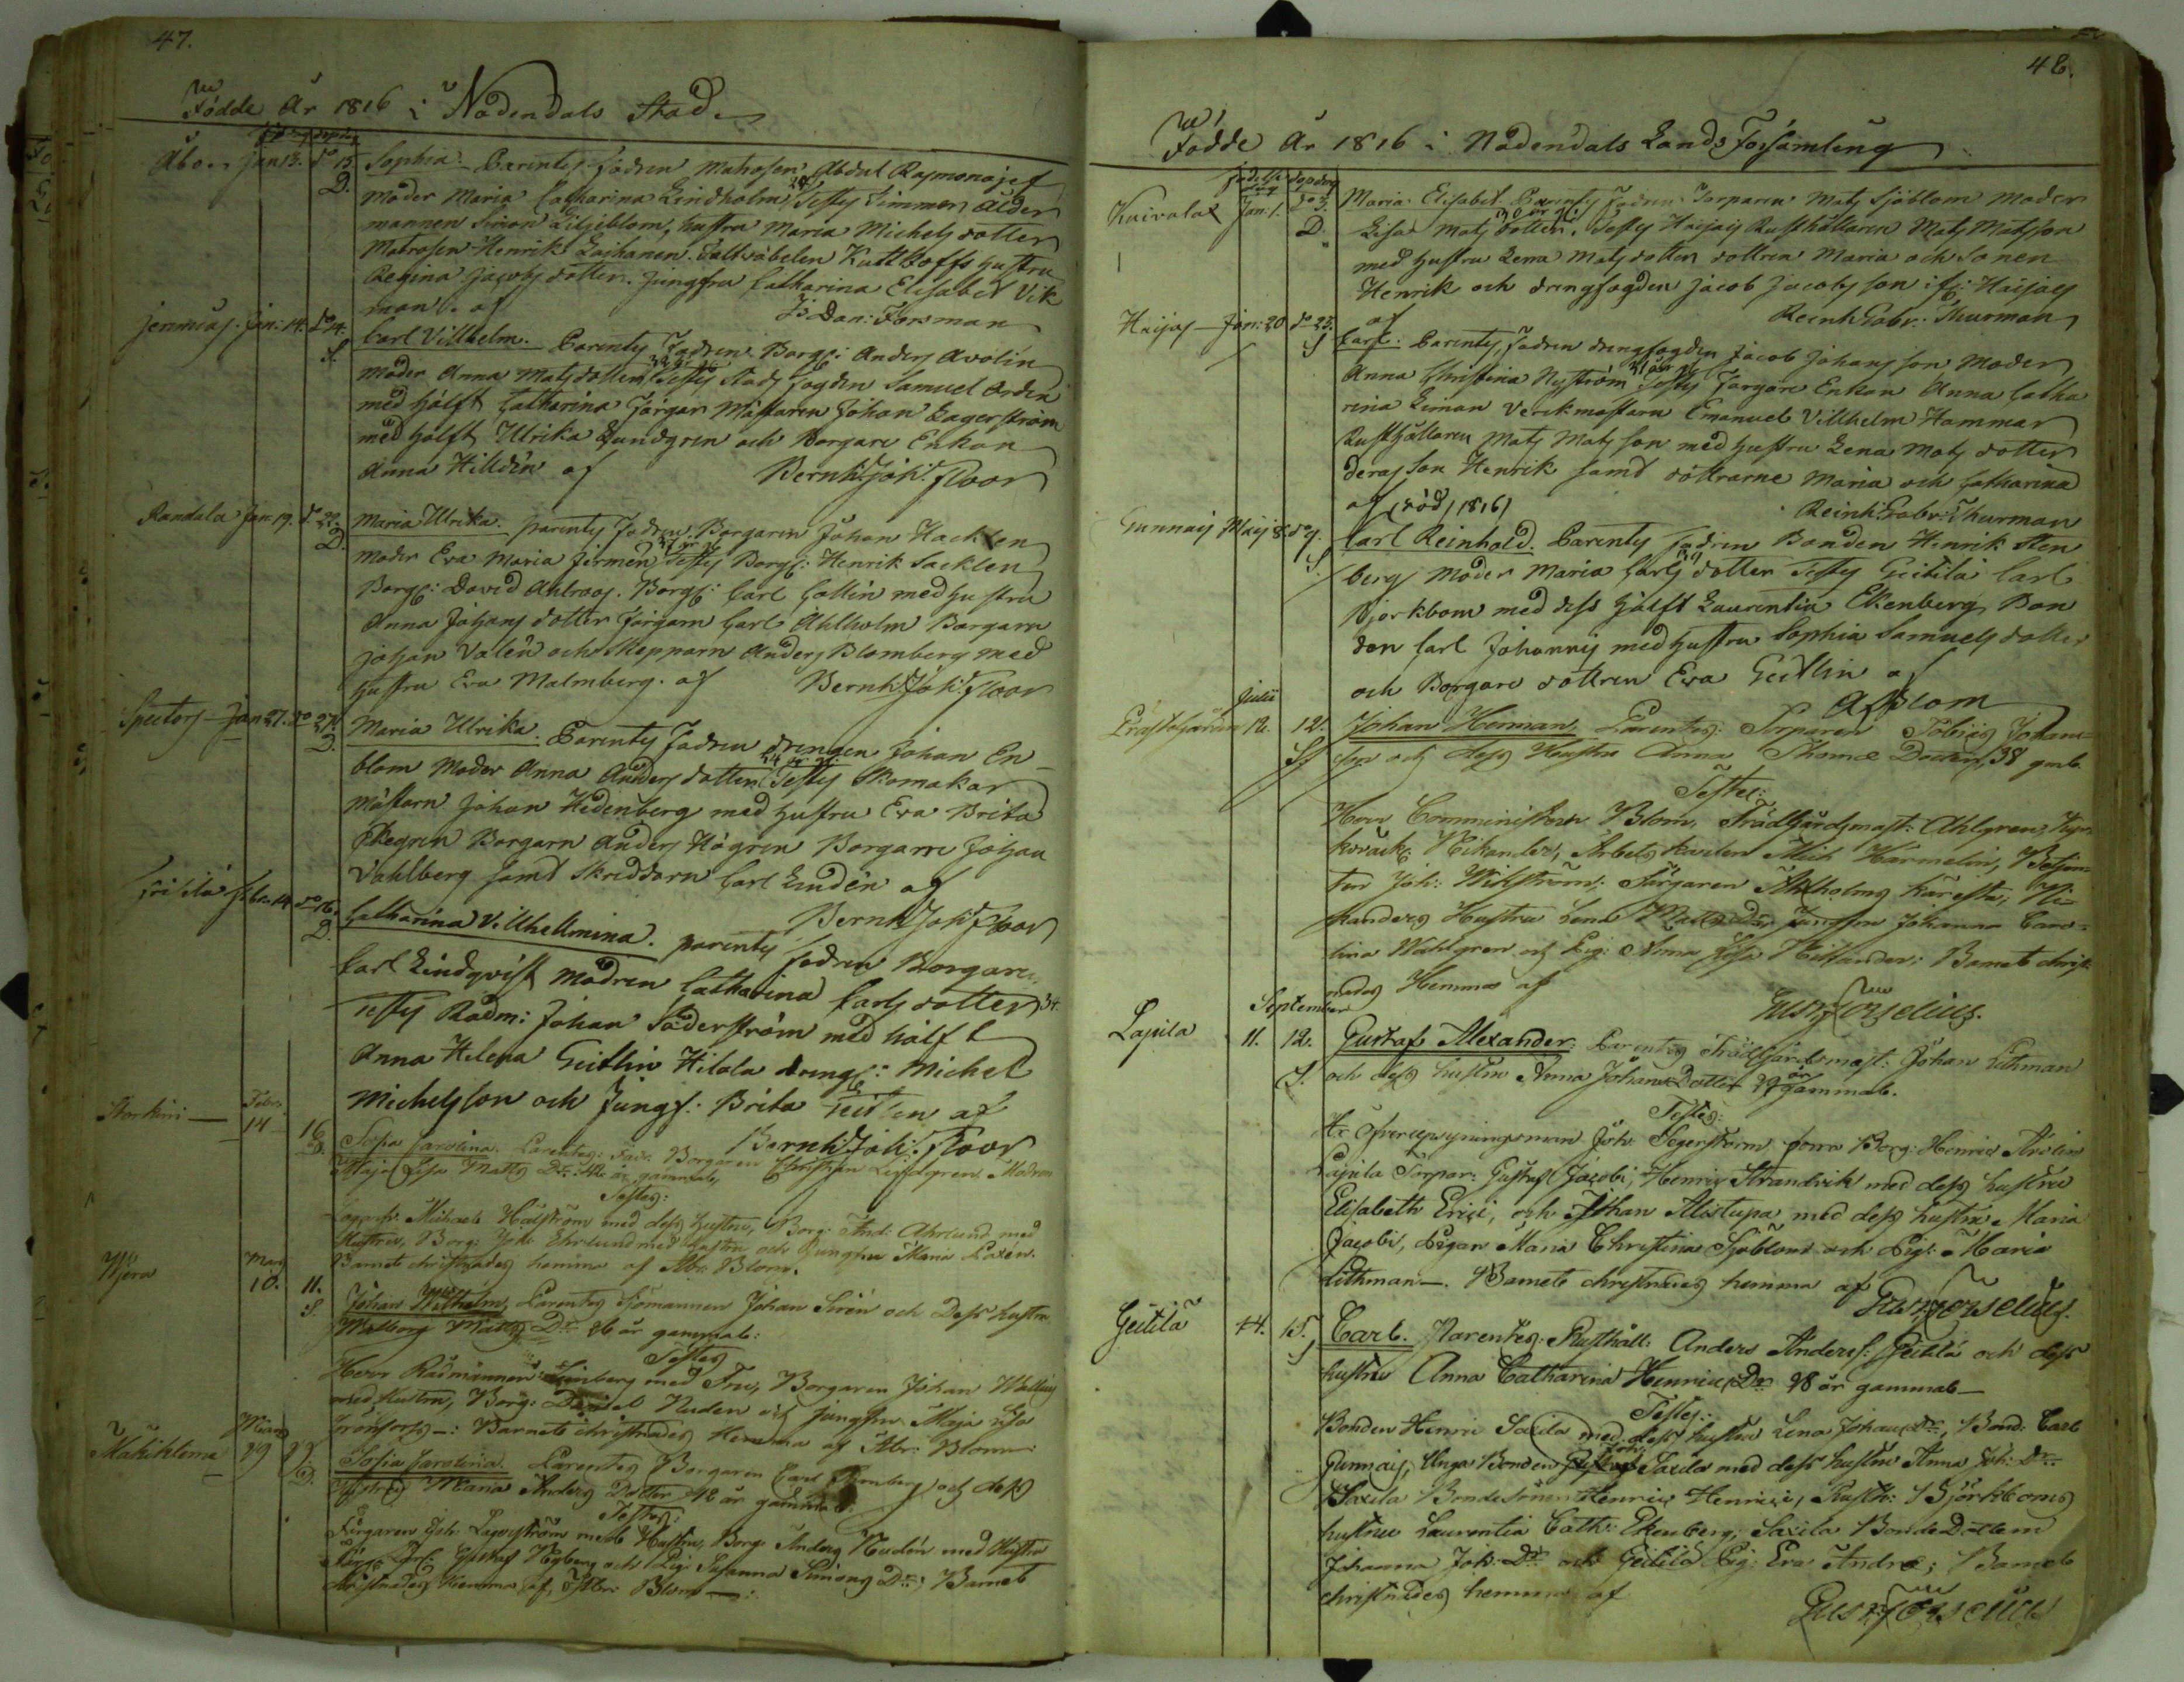 47.
Födde År 1816 i Nådendals Stad
Åbo Jan 13. do 15. D. Sophia. Parentes fadren Matrosen Abdul
moder Maria Catharina Lindholm Testes Timmer Ålder
mannen Simon Liljeblom, hustru Maria Michels dotter
Matrosen Henrik hustru
Regina Jacobs dotter. Jungfru Catharina Elisabet Vik
man. af Dan: Forsman
Jan: 14. do 14. S. Carl Villhelm. Parentes Fadren Borg: Anders Avolin
moder Anna Mats dotter Testes Stads fogden Samuel
med hälft Catharina Färgar Mästaren Johan Lagerström
med hälft Ulrika Lundgren och Borgare Enkan
Anna Hilldén af Bernh: Joh: Floor
Randala Jan 19. do 22. D. Maria Ulrika. parentes Fadren Borgaren Johan
moder Eva Maria Testes Borg: Henrik Sacklen
Borg: David Ahlroos. Borg: Carl Collin med hustru
Anna Johans dotter Färgarn Carl Ahlholm Borgarn
Johan Valén och Skepparn Anders Blomberg med
hustru Eva Malmberg. af Bernh: Joh: Floor
Spectors Jan 27. do 27. D. Maria Ulrika. Parentes Fadren drengen Johan En
blom Moder Anna Anders dotter Testes Skomakar
mästarn Johan Hedenberg med hustru Eva Brita
Borgarn Anders Högren Borgarn Johan
Vahlberg samt Skreddarn Carl Lindén af
Bernh: Joh: Floor
14 do 16. D. Catharina Villhellmina. parentes fadren Borgaren
Carl Lindqvist Modren Catharina Carls dotter 34.
Testes Rådm: Johan Söderström med hälft
Anna Helena Geitlin Hilola dreng: Michel
Michelsson och Jungf: Brita af
Bernh: Joh: Floor
Febr. 14 16 D. Sofia Carolina. Parentes: Fadr. Borgaren Christian Modren
Maja Lisa Matts Dr: år gammal,
Testes:
Michael Hälström med dess hustru, Borg: And: Ahrlund med
Hustru, Borg: Joh: Ehrlund med hustru och Jungfru Maria
Barnet christnades hemma af Abr: Blom.
Mars 10. 11. S. Johan Wilhelm, Parentes Sjömannen Johan Sirén och Dess hustru
Walborg Matts Dr 26 år gammal:
Testes
Herr Rådmannen med Fru, Borgaren Johan
med Hustru, Borg: Daniel Nuden och jungfru Maja Lisa
Barnet christnades Hemma af Abr: Blom
Mars 29 29. D. Sofia Carolina. Parentes Borgaren Carl och dess
Hustru Maria Anders Dotter 42 år gammal.
Testes:
Färgaren Joh: Lagerström med Hustru, Borg: Anders Nudén med Hustru
Gustaf Nyberg och Pig: Susanna Simons Dr; Barnet
christnades Hemma af Abr: Blom
48.
Födde År 1816 i Nådendals Lands Församling
Födelse dag Dopdag
Kaivola Jan: 1. do 3. D. Maria Elisabet. Parentes Fadren Torparen Mats Sjöblom moder
Lisa Mats dotter. 30 år gl. Testes Haijais Rusthållaren Mats Matsson
med hustru Lena Mats dotter dottren Maria och Sonen
Henrik och drengfogden Jacob Jacobsson ifr: Haijais
af Reinh: Gabr: Thurman
Haijas Jan: 20 do 23. S Carl. Parentes, fadren drengfogden Jacob Johansson Moder
Anna Christina Nyström Testes Färgare Enkan Anna Catha
rina Verckmästarn Emanuel Villhelm Hammar
Rusthållaren Mats Matsson med hustru Lena Mats dotter
deras Son Henrik samt döttrarne Maria och Catharina
af (död 1816) Reinh: Gabr: Thurman
Gunnais Maij 8. do 9. S. Carl Reinhold. Parentes Fadren Bonden Henrik Sten
berg Moder Maria Carls dotter Testes Geitila Carl
Björkbom med dess hälft Laurentia Ekenberg Bon
den Carl Johannis med hustru Sophia Samuels dotter
och Borgare dottren Eva Geitlin af
A Blom
Julii
12. 12. S. Johan Herman Parentes: Torparen Tobias Johans
son och dess Hustru Anna Thomæ Dotter, 38 gaml.
Testes:
Herr Comministern Blom, Trädgårdsmäst: Ahlgren,
Nikander, Arbets karlen Mich Härmelin,
Joh: Wikström; Färgaren Ahlholms Ni-
kanders Hustru Lena Matts Dr Jungfru Johanna Caro-
lina Wahlgren och Pig: Anna Lisa Nikander; Barnet christ-
nades Hemma af Gust: Forselius.
September
Lajula 11. 12. S. Gustaf Alexander: Parentes Trädgårdsmäst: Johan Lithman
och dess hustru Anna Johans Dotter 29 år gammal.
Testes:
Hr Öfveruppsyningsman Joh: Segerström Borg: Henric Avolin
Lajula Torpar: Gustaf Jacobi, Henric Strandvik med dess hustru
Elisabeth Erici, och Johan Alistupa med dess hustru Maria
Jacobi, Pigan Maria Christina Sjöblom och Pig: Maria
Lithman. Barnet christnades hemma af
Gust: Forselius.
Geitila 14. 15. S Carl. Parentes: Rusthåll: Anders Anders: Geitila och dess
hustru Anna Catharina Henrics Dr 28 år gammal
Testes:
Bonden Henric Saxila med dess hustru Lena Johans Dr, Bond: Carl
Gunnais, Unga Bonden Joh: Saxila med dess hustru Anna Joh: Dr
Saxila Bondesonen Henric Henrici, Rusth: Björkboms
hustru Laurentia Cath: Ekenberg; Saxila Bonde Dottern
Johanna Joh: Dr och Geitila Pig: Eva Andræ; Barnet
christnades hemma af
Gust: Forselius